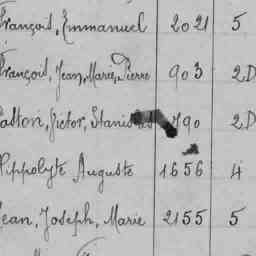 François, Emmanuel 2021 5
François, Jean, Marie, Pierre 903 2D
Gaston, Victor, Stanislas 790 2D
Hippolyte Auguste 1656 4
Jean, Joseph, Marie 2155 5